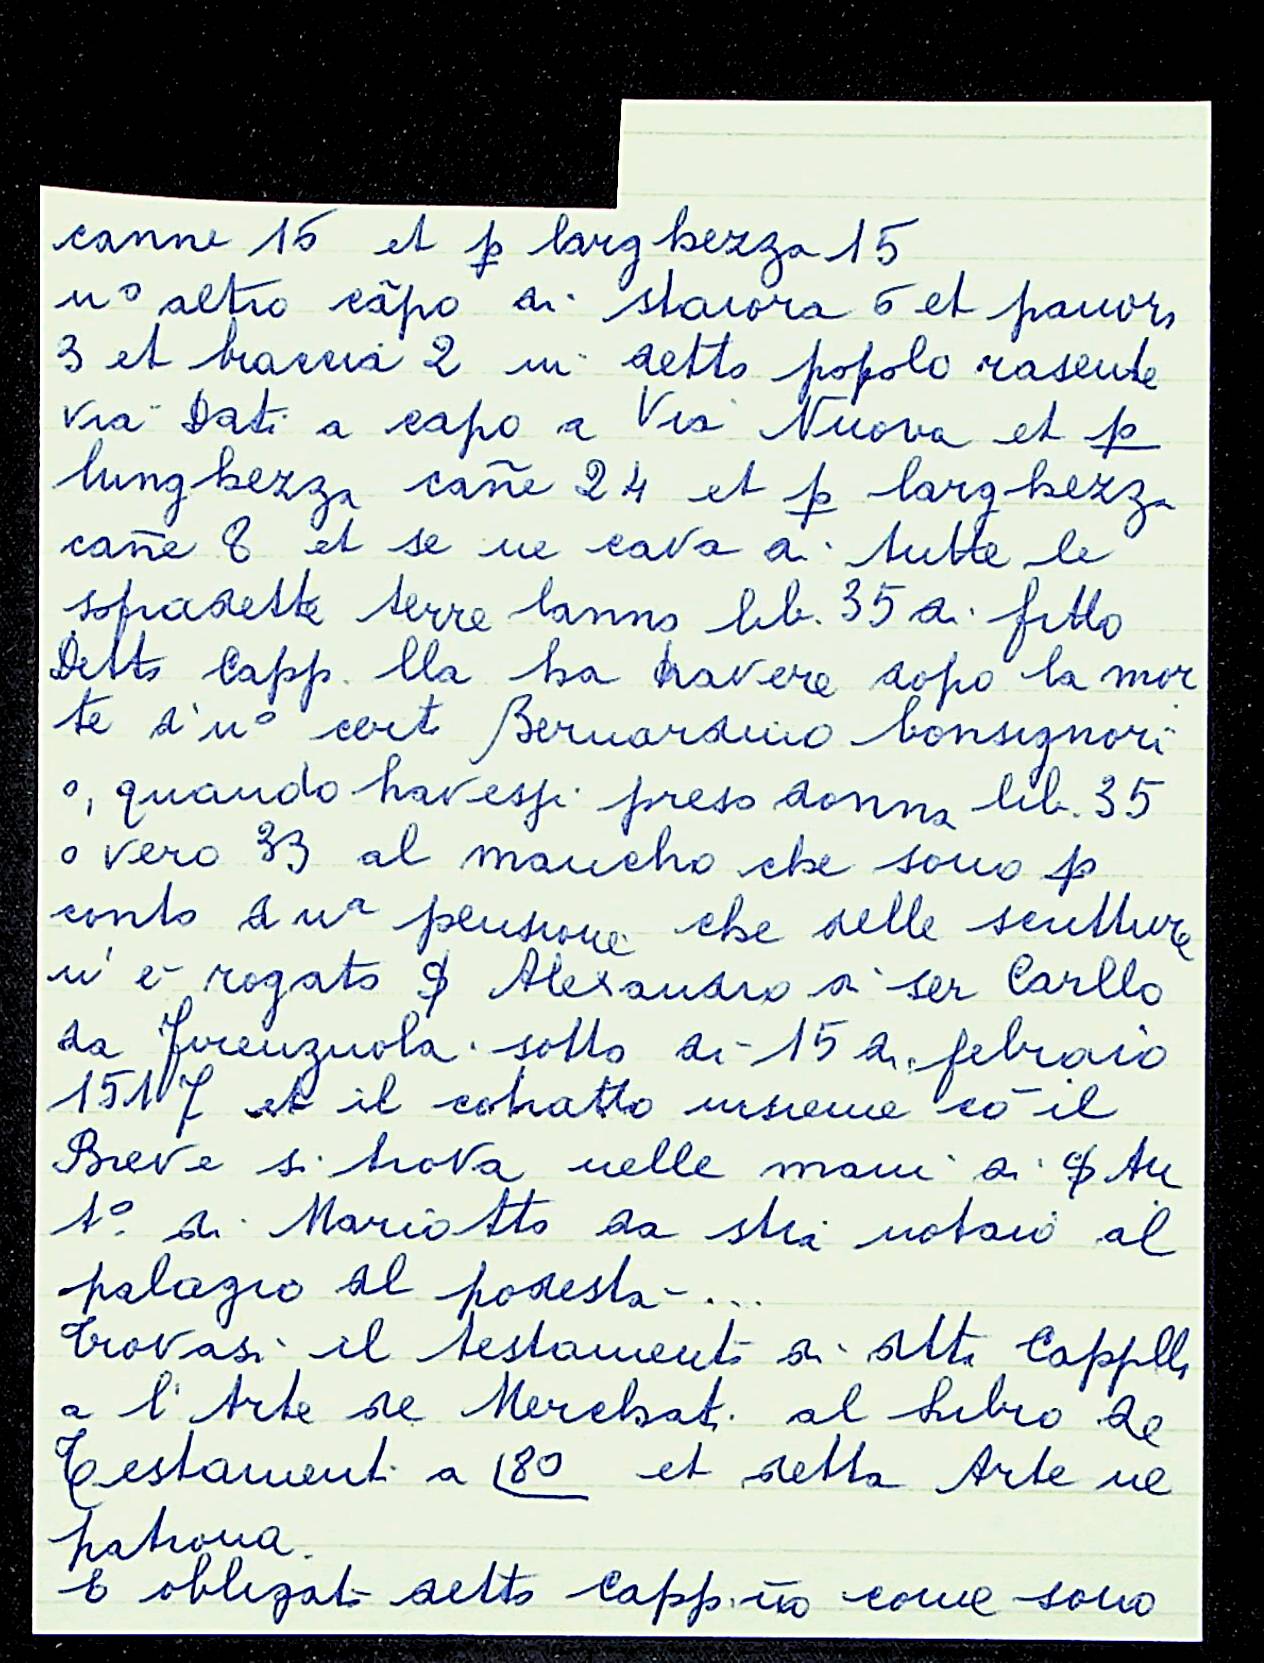 canne 15 et ꝑ larghezza 15
uº altro cãpo di staiora 6 et panori
3 et braccia 2 in detto popolo rasente
via Dati a capo a Via Nuova et ꝑ
lunghezza cañe 24 et ꝑ larghezza
cañe 8 et se ne cava di tutte le
sopradette terre lanno lib. 35 di fitto
Detta Capp.lla ha havere dopo la mor
te d'uº certo Bernardino bonsignori
o, quando havessi preso donna lib. 35
o vero 33 al mancho che sono ꝑ
conto d uª pensione che delle scritture
n'è rogato ꟊ Alexandro di ser Carllo
da Firenzuola sotto dì 15 di febraio
1517 et il cotratto insieme cō il
Breve si trova nelle mani di ꟊ An
tº. di Mariotto da stia notaio al
palagio del podestà ...
Trovasi il testamento di detta Cappll
a l'Arte de Merchati al Libro de
Testamenti a 180 et detta Arte ne
patrona.
E obligato detto Capp.no come sono